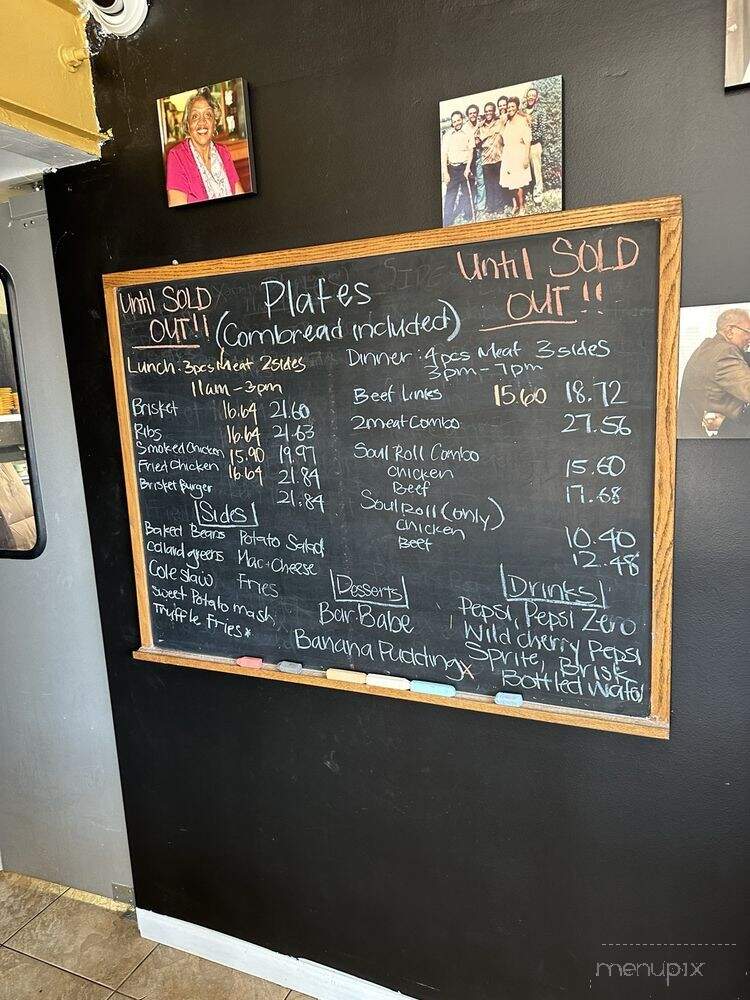 Until SOLD
OUT!!
Plates
(Cornbread included)
Until SOLD
OUT!!
Lunch: 3pcs Meat 2 sides
11am - 3pm
Brisket 16.64 21.60
Ribs 16.64 21.63
Smoked Chicken 15.90 19.97
Fried Chicken 16.64 21.84
Brisket Burger 21.84
Sides
Baked Beans Potato Salad
Collard greens Mac+Cheese
Cole slaw Fries
Sweet Potato mash
Truffle Fries*
Dinner: 4pcs Meat 3 sides
3pm - 7pm
Beef Links 15.60 18.72
2 meat Combo 27.56
Soul Roll Combo
Chicken 15.60
Beef 17.68
Soul Roll (only)
Chicken 10.40
Beef 12.48
Desserts
Bar Babe
Banana Pudding x
Drinks
Pepsi, Pepsi Zero
Wild cherry Pepsi
Sprite, Brisk
Bottled Water
menupix